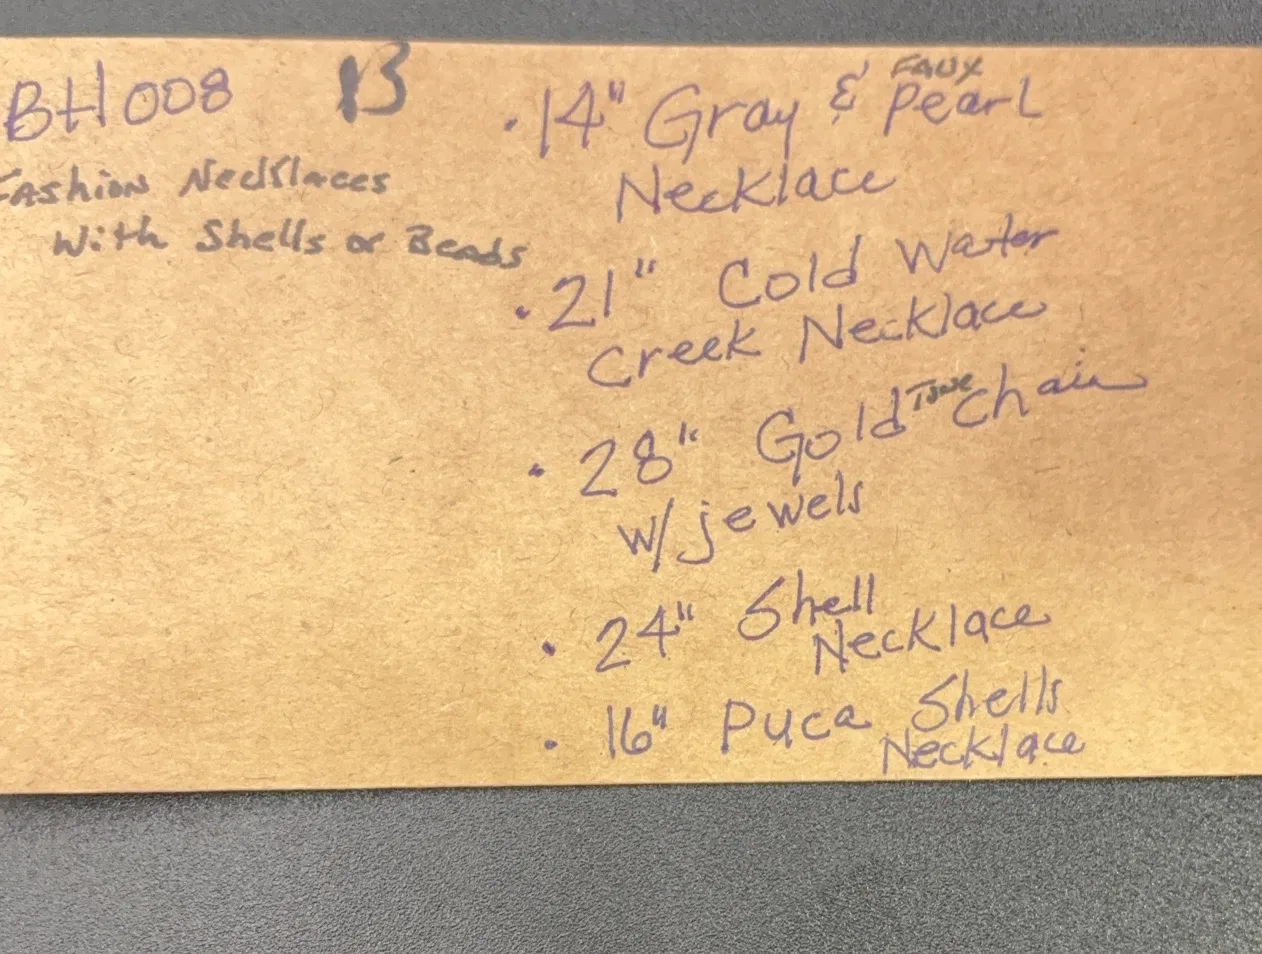 BH008 B
Fashion Necklaces
With Shells or Beads
• 14" Gray & FAUX Pearl
Necklace
• 21" Cold Water
Creek Necklace
• 28" Gold Tone Chain
w/ jewels
• 24" Shell
Necklace
• 16" Puca Shells
Necklace